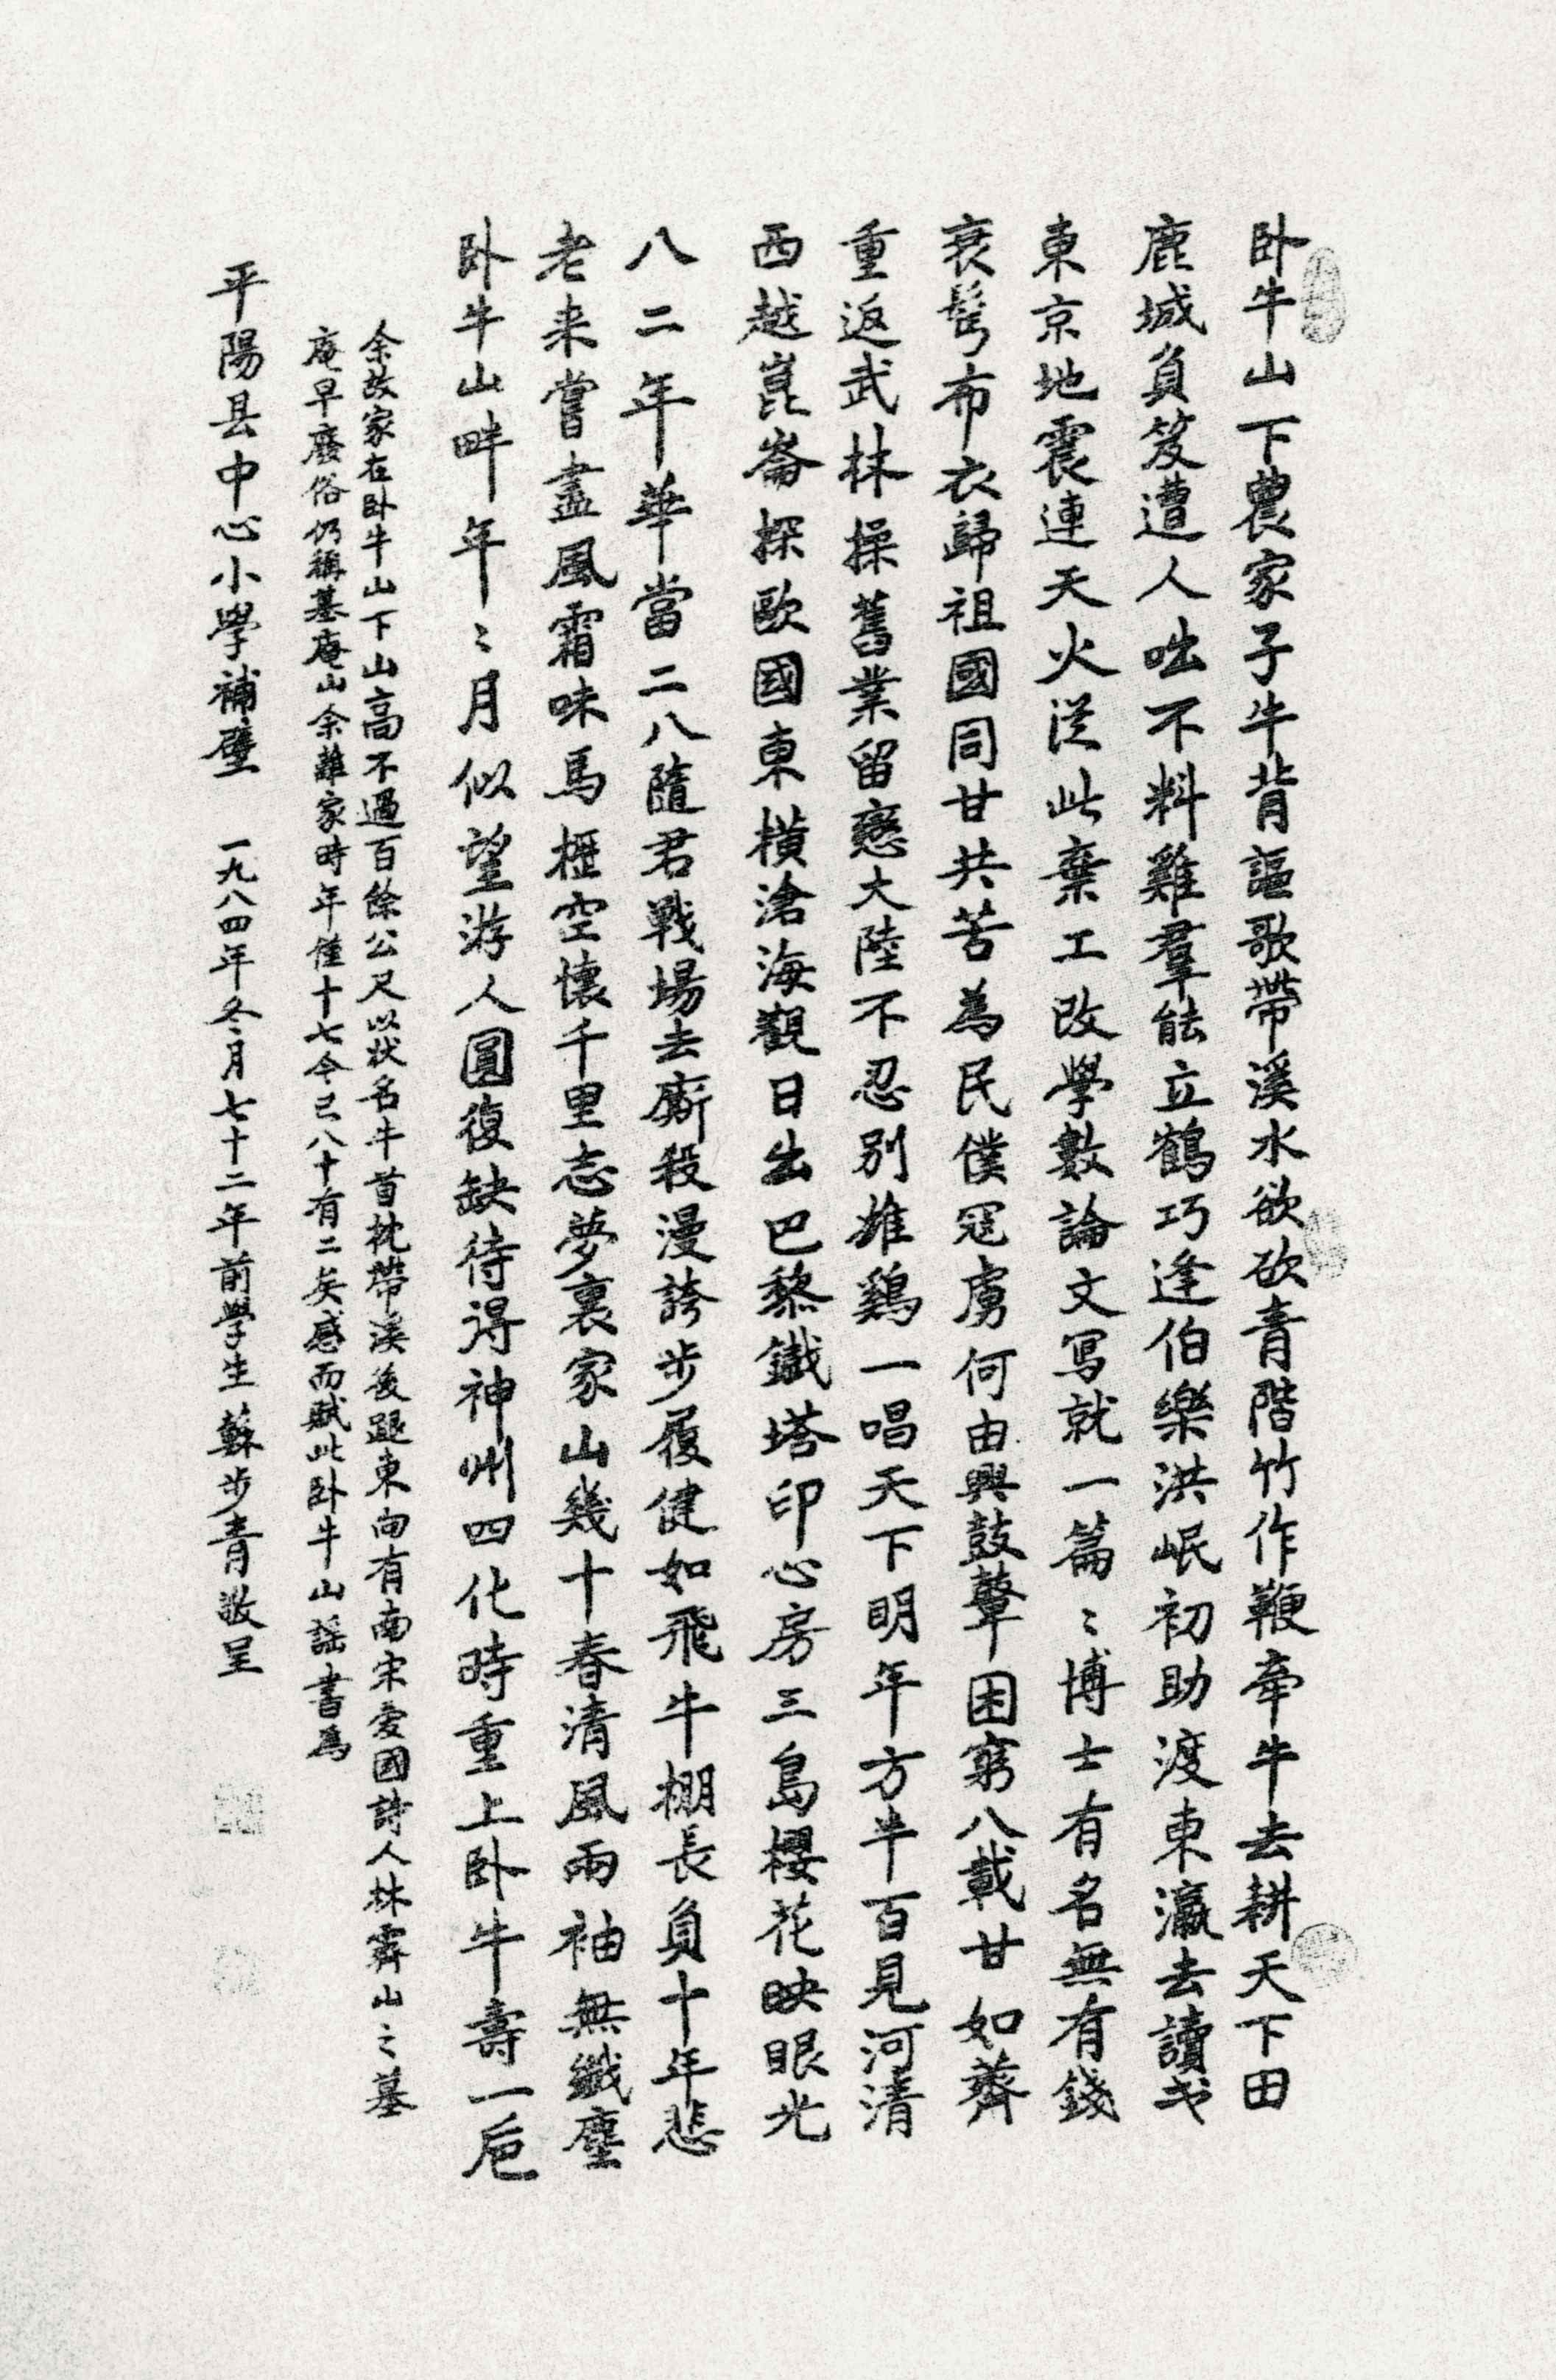 卧牛山下農家子牛背謳歌帶溪水欲砍青階竹作鞭牽牛去耕天下田
鹿城負笈遭人咄不料雞羣能立鶴巧逢伯樂洪岷初助渡東瀛去讀书
東京地震連天火從此棄工改學數論文写就一篇〻博士有名無有錢
衰髩布衣歸祖國同甘共苦為民僕寇虜何由興鼓鼙困窮八載甘如薺
重返武林操舊業留戀大陸不忍別雄鷄一唱天下明年方半百見河清
西越崑崙探歐國東橫滄海觀日出巴黎鐵塔印心房三島櫻花映眼光
八二年華當二八隨君戰場去廝殺漫誇步履健如飛牛棚長負十年悲
老来嘗盡風霜味馬櫪空懷千里志夢裏家山幾十春清風兩袖無纖塵
卧牛山畔年〻月似望游人圓復缺待得神州四化時重上卧牛壽一卮
余故家在卧牛山下山高不過百餘公尺以状名牛首枕帶溪後跽東向有南宋爱國詩人林霽山之墓
庵早廢俗仍稱墓庵山余離家時年僅十七今已八十有二矣感而賦此卧牛山謡書為
平陽县中心小學補壁 一九八四年冬月七十二年前學生蘇步青敬呈